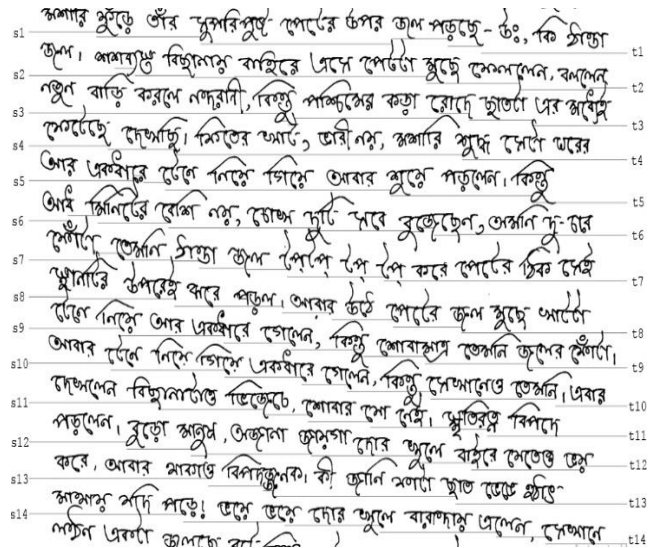 মশারি ফুঁড়ে তাঁর সুপরিপুষ্ট পেটের উপর জল পড়ছে - উঃ, কি ঠান্ডা
s1 t1
জল। শশব্যস্তে বিছানার বাহিরে এসে পেটটা মুছে ফেললেন, বললেন
s2 t2
নতুন বাড়ি করলে নন্দরাণী, কিন্তু পশ্চিমের কড়া রোদে ছাতটা এর মধ্যেই
s3 t3
ফেটেছে দেখছি। ফিতের খাট, ভারী নয়, মশারি শুদ্ধ সেটা ঘরের
s4 t4
আর একধারে টেনে নিয়ে গিয়ে আবার শুয়ে পড়লেন। কিন্তু
s5 t5
আধ মিনিটের বেশি নয়, চোখ দুটি সবে বুজেছেন, অমনি দু-চার
s6 t6
ফোঁটা তেমনি ঠান্ডা জল টপ্ টপ্ টপ টপ্ করে পেটের ঠিক সেই
s7 t7
স্থানটির উপরেই ঝরে পড়ল। আবার উঠে পেটের জল মুছে খাটটা
s8 t8
টেনে নিয়ে আর একধারে গেলেন, কিন্তু শোবামাত্র তেমনি জলের ফোঁটা।
s9 t9
আবার টেনে নিয়ে গিয়ে একধারে গেলেন, কিন্তু সেখানেও তেমনি। এবার
s10 t10
দেখলেন বিছানাটাও ভিজেচে, শোবার যো নেই। স্মৃতিরত্ন বিপদে
s11 t11
পড়লেন। বুড়ো মানুষ, অজানা জায়গা দোর খুলে বাইরে যেতেও ভয়
s12 t12
করে, আবার থাকাও বিপদজনক। কী জানি ফাটা ছাত ভেঙে হঠাৎ
s13 t13
মাথায় যদি পড়ে! ভয়ে ভয়ে দোর খুলে বারান্দায় এলেন, সেখানে
s14 t14
লণ্ঠন একটা জ্বলছে বটে